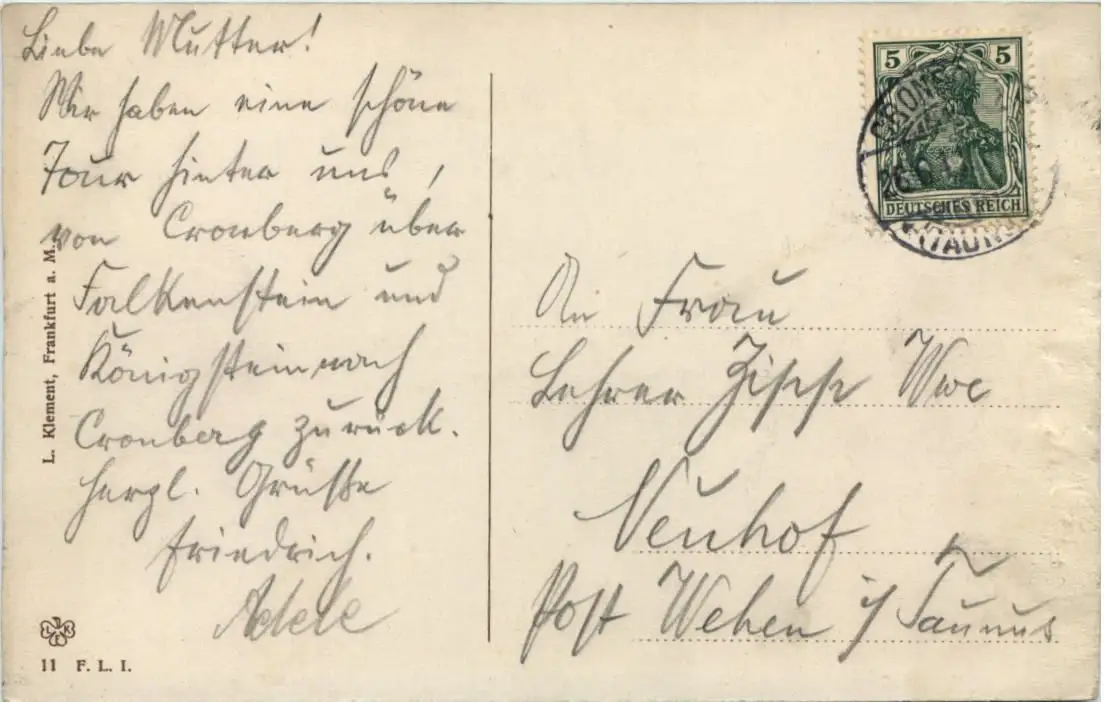 Liebe Mutter!
Wir haben eine schöne
Tour hinter uns,
von Cronberg über
Falkenstein und
Königstein nach
Cronberg zurück.
Herzl. Grüße
Friedrich.
Adele
L. Klement, Frankfurt a. M.
11 F. L. I.
5 5
DEUTSCHES REICH
CRONB
(TAUNUS
An Frau
Lehrer Zipp Wwe
Neuhof
Post Wehen i/ Taunus